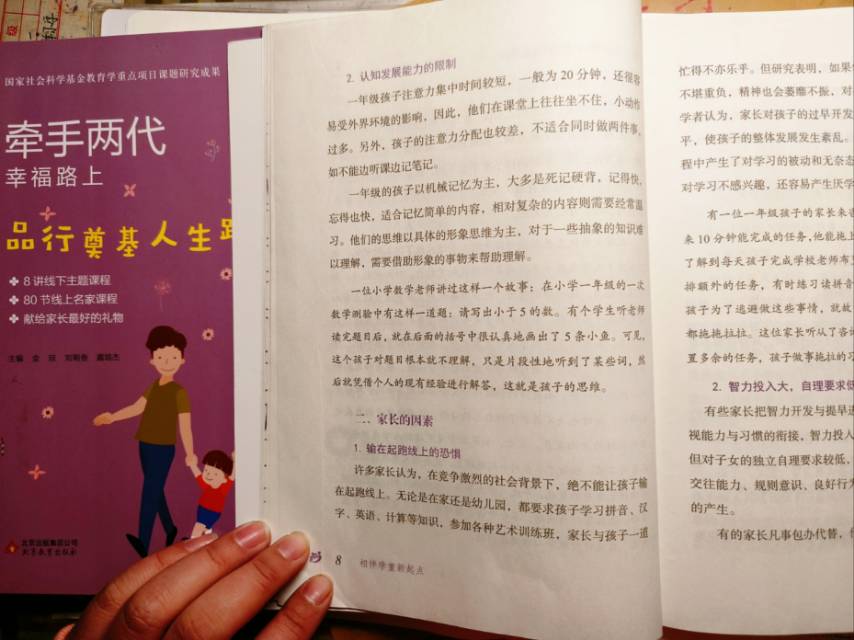 国家社会科学基金教育学重点项目课题研究成果
牵手两代
幸福路上
品行奠基人生路
8讲线下主题课程
80节线上名家课程
献给家长最好的礼物
主编
北京出版集团公司
北京教育出版社
2. 认知发展能力的限制
一年级孩子注意力集中时间较短，一般为20分钟，还很容
易受外界环境的影响，因此，他们在课堂上往往坐不住，小动作
过多。另外，孩子的注意力分配也较差，不适合同时做两件事，
如不能边听课边记笔记。
一年级的孩子以机械记忆为主，大多是死记硬背，记得快，
忘得也快，适合记忆简单的内容，相对复杂的内容则需要经常温
习。他们的思维以具体的形象思维为主，对于一些抽象的知识难
以理解，需要借助形象的事物来帮助理解。
一位小学数学老师讲过这样一个故事：在小学一年级的一次
数学测验中有这样一道题：请写出小于5的数。有个学生听老师
读完题目后，就在后面的括号中很认真地画出了5条小鱼。可见，
这个孩子对题目根本就不理解，只是片段性地听到了某些词，然
后就凭借个人的现有经验进行解答，这就是孩子的思维。
二、家长的因素
1. 输在起跑线上的恐惧
许多家长认为，在竞争激烈的社会背景下，绝不能让孩子输
在起跑线上。无论是在家还是幼儿园，都要求孩子学习拼音、汉
字、英语、计算等知识，参加各种艺术训练班，家长与孩子一道
8 相伴学童新起点
忙得不亦乐乎。但研究表明，如果
不堪重负，精神也会萎靡不振，对
学者认为，家长对孩子的过早开发
平，使孩子的整体发展发生紊乱。
程中产生了对学习的被动和无奈态
对学习不感兴趣，还容易产生厌学
有一位一年级孩子的家长来咨
来10分钟能完成的任务，他能拖上
了解到每天孩子完成学校老师布
排额外的任务，有时练习读拼音
孩子为了逃避做这些事情，就故
都拖拖拉拉。这位家长听从了咨
置多余的任务，孩子做事拖拉的习
2. 智力投入大，自理要求低
有些家长把智力开发与提早进
视能力与习惯的衔接，智力投入
但对子女的独立自理要求较低，
交往能力、规则意识、良好行为
的产生。
有的家长凡事包办代替，